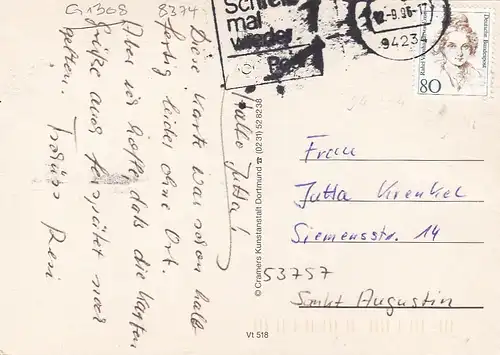 G1308
8374-
Schreib
mal
wieder
Post
-9.96-17
94234
Deutsche Bundespost
80
Hallo Jutta!
Diese Karte war schon halb
fertig, leider ohne Ort.
Aber ich hoffe, daß die Karten
Grüße auch verspätet noch
gelten.
Resi
© Cramers Kunstanstalt Dortmund ☎ (0231) 528238
Vt 518
Frau
Jutta Krenkel
Siemensstr. 14
53757
Sankt Augustin